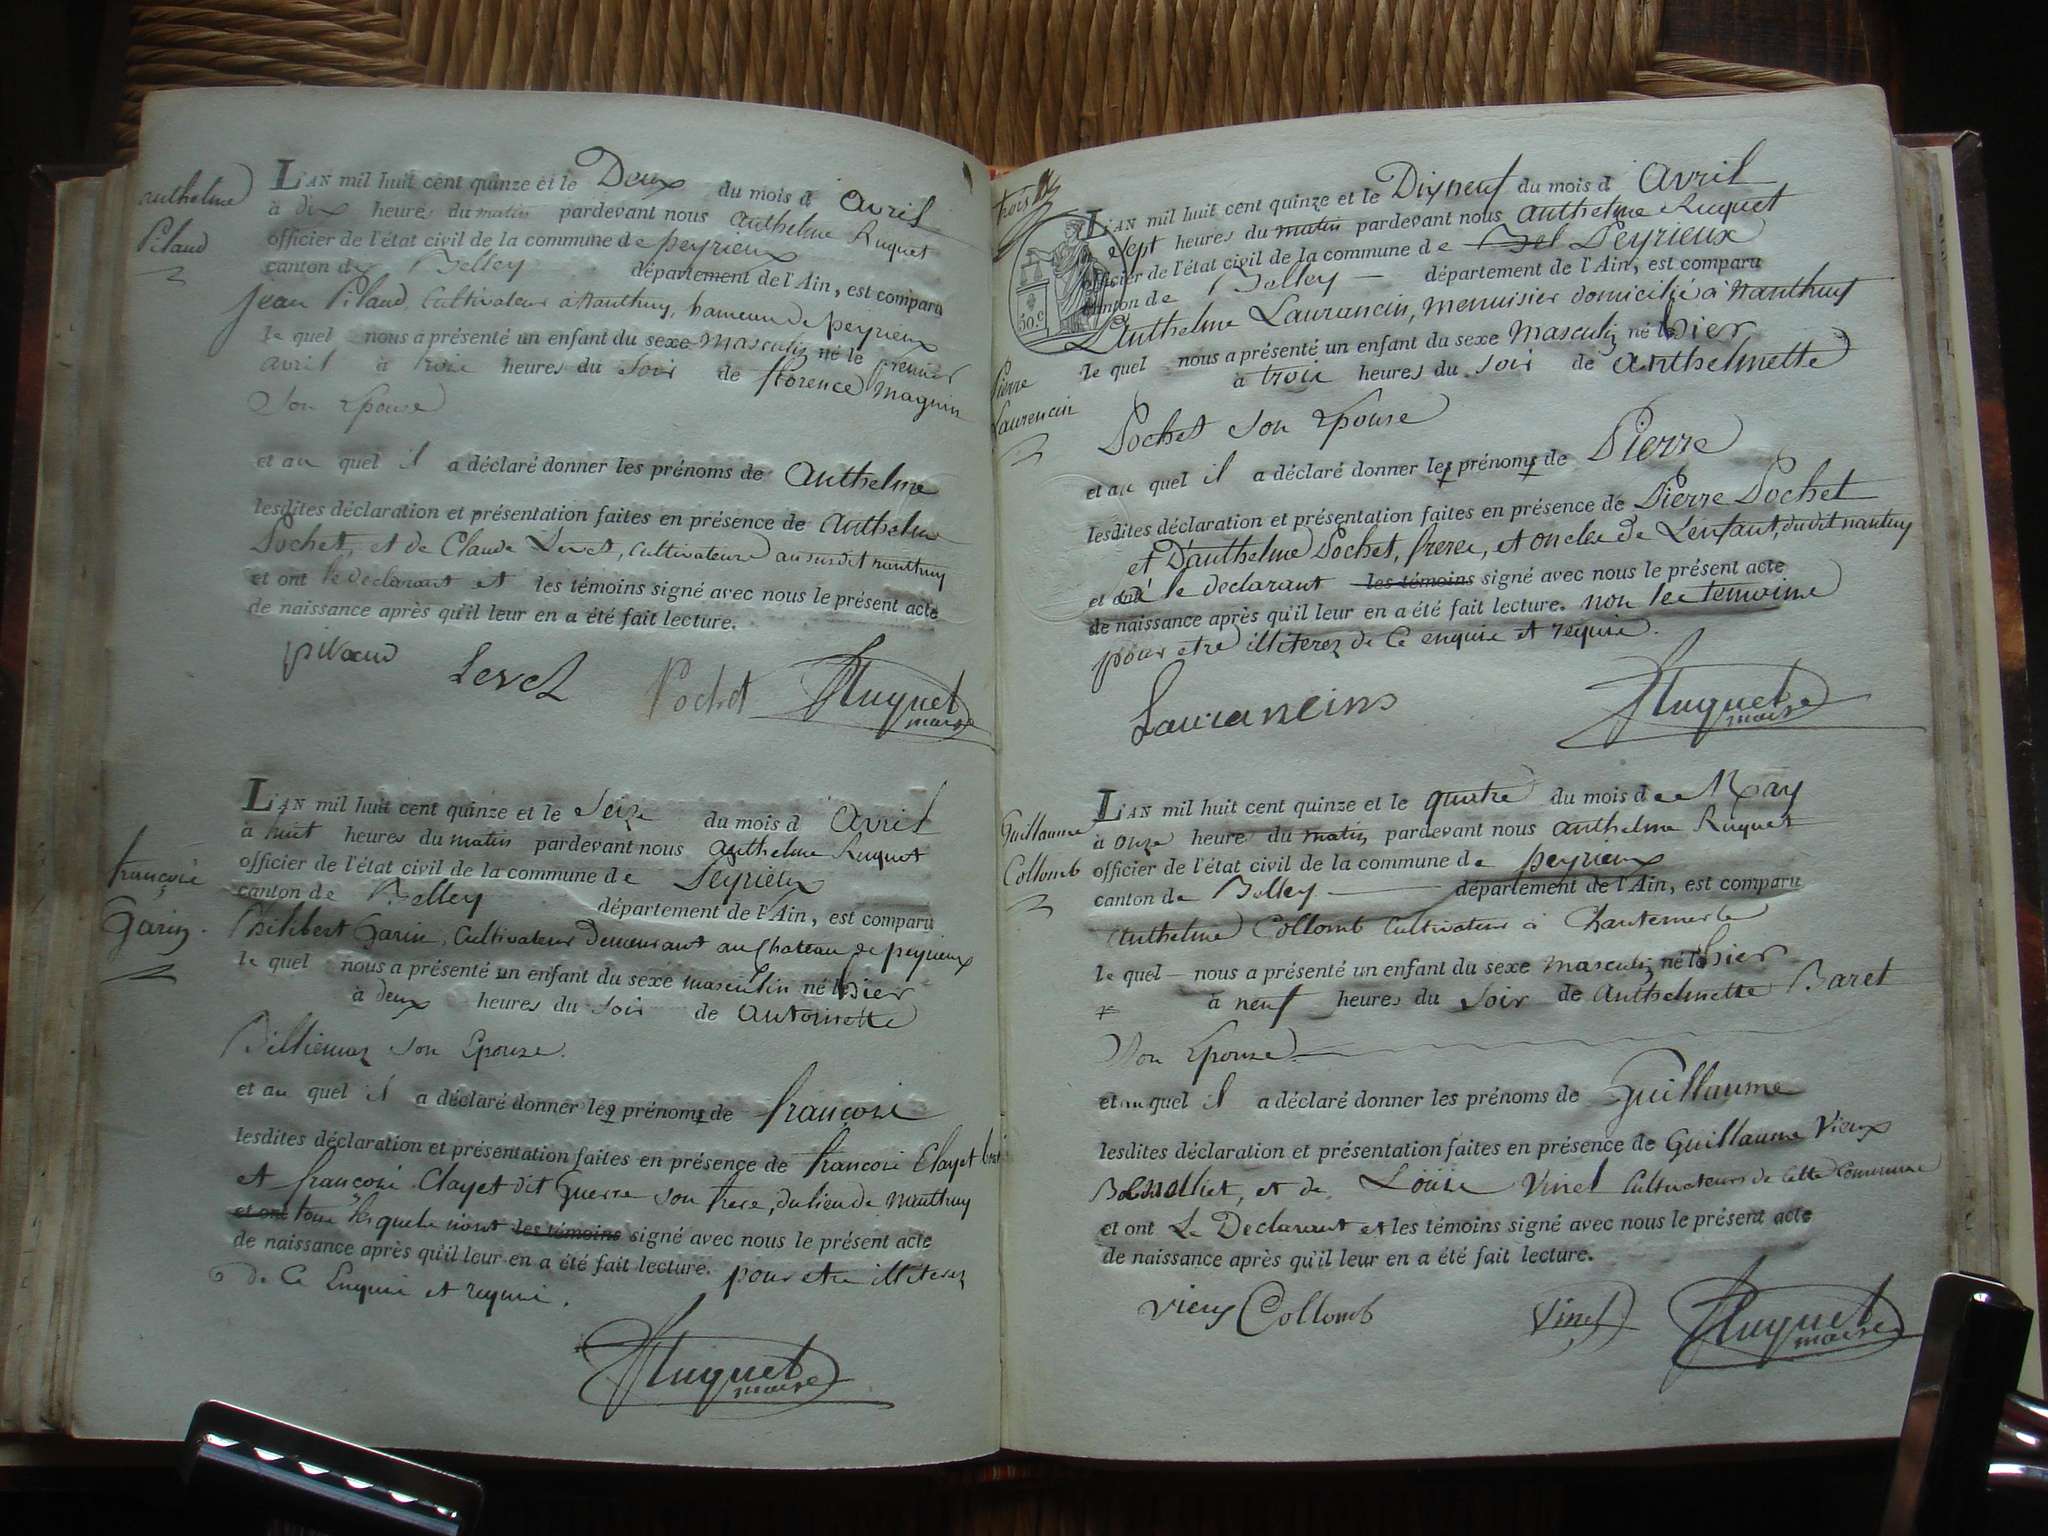 anthelme
Pilaud
L'AN mil huit cent quinze et le Deux du mois d avril
à dix heures du matin pardevant nous anthelme Ruquet
officier de l'état civil de la commune de peyrieux
canton de Belley département de l'Ain, est comparu
jean Pilaud, Cultivateur à nanthuy, hameau de peyrieux
le quel nous a présenté un enfant du sexe masculin né le premier
avril à trois heures du soir de florence magnin
Son Epouse
et au quel il a déclaré donner les prénoms de anthelme
lesdites déclaration et présentation faites en présence de anthelme
Pochet, et de Claude Levet, cultivateurs au susdit nanthuy
et ont le déclarant et les témoins signé avec nous le présent acte
de naissance après qu'il leur en a été fait lecture.
pilaud Levet Pochet Ruquet
maire
françois
Garin
L'AN mil huit cent quinze et le Seize du mois d avril
à huit heures du matin pardevant nous anthelme Ruquet
officier de l'état civil de la commune de Peyrieux
canton de Belley département de l'Ain, est comparu
Philibert Garin, Cultivateur demeurant au chateau de peyrieux
le quel nous a présenté un enfant du sexe masculin né le hier
à deux heures du soir de antoinette
Billiemaz son Epouse.
et au quel il a déclaré donner les prénoms de françois
lesdites déclaration et présentation faites en présence de françois Clayet
et françois Clayet dit Guerre son frere, du lieu de nanthuy
et ont tous lesquels n'ont les témoins signé avec nous le présent acte
de naissance après qu'il leur en a été fait lecture. pour etre illiterez
de Ce Enquis et requis.
Ruquet
maire
trois
50.c
Pierre
Laurencin
L'AN mil huit cent quinze et le Dix neuf du mois d avril
à sept heures du matin pardevant nous anthelme Ruquet
officier de l'état civil de la commune de Bel Peyrieux
canton de Belley département de l'Ain, est comparu
Anthelme Laurancin, menuisier domicilié à nanthuy
le quel nous a présenté un enfant du sexe masculin né le hier
à trois heures du soir de anthelmette
Pochet son Epouse
et au quel il a déclaré donner les prénoms de Pierre
lesdites déclaration et présentation faites en présence de Pierre Pochet
et D'anthelme Pochet, freres, et oncles de L'enfant, dudit nantuy
et a le declarant les témoins signé avec nous le présent acte
de naissance après qu'il leur en a été fait lecture. non les temoins
pour etre illiterez de Ce enquis et requis.
Laurancins Ruquet
maire
Guillaume
Collomb
L'AN mil huit cent quinze et le quatre du mois de May
à onze heure du matin pardevant nous anthelme Ruquet
officier de l'état civil de la commune de peyrieux
canton de Belley département de l'Ain, est comparu
Anthelme Collomb Cultivateur à Chantemerle
le quel nous a présenté un enfant du sexe masculin né le hier
à neuf heures du soir de Anthelmette Baret
Son Epouse
et au quel il a déclaré donner les prénoms de Guillaume
lesdites déclaration et présentation faites en présence de Guillaume Vieux
et de Louis Vinet Cultivateurs de Cette Commune
et ont Le Declarant et les témoins signé avec nous le présent acte
de naissance après qu'il leur en a été fait lecture.
Vieux Collomb Vinet Ruquet
maire